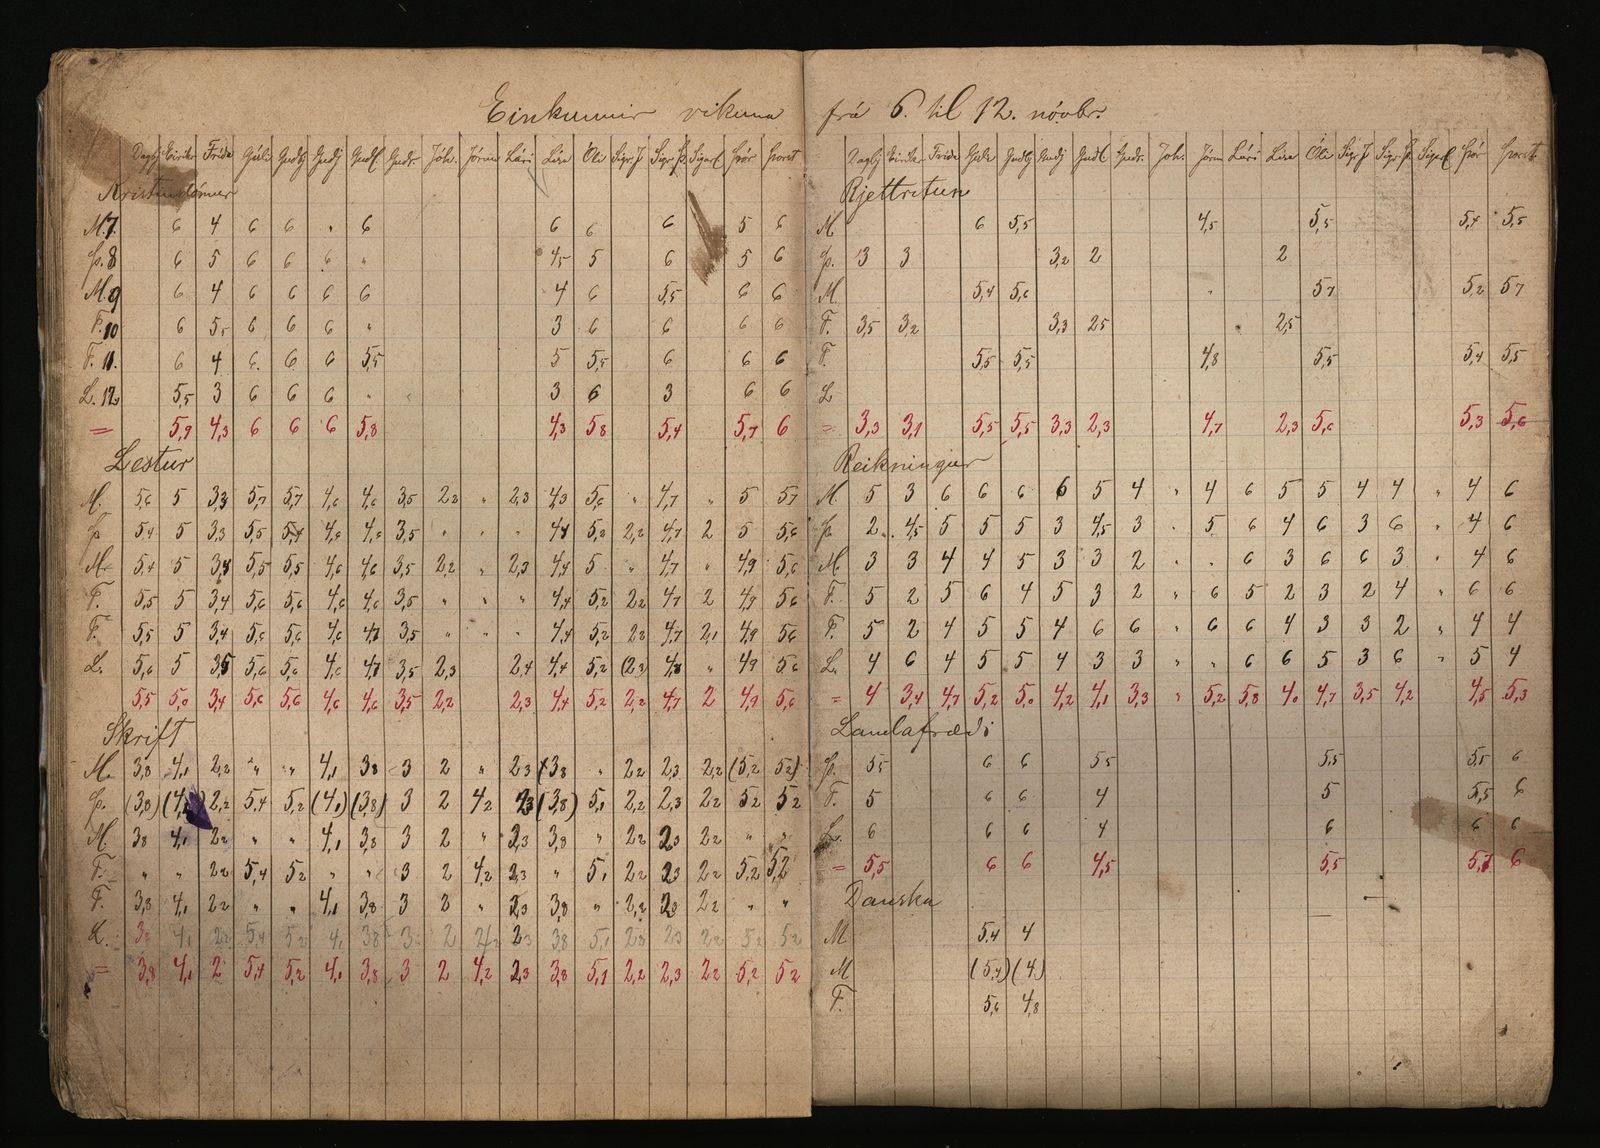 Einkunnir vikuna frá 6. til 12. nóvbr.
Dagbj Eirikr Friða Guðbj Guðj Guðl Guðr. Jóh. Jórun Lári Lísa Óli Sigr J Sigr Þ. Þór Þorst
Kristindómur
M. 7. 6 4 6 6 " 6 6 6 6 5 6
Þ. 8 6 5 6 6 6 " 4,5 5 6 5 6
M. 9 6 4 6 6 6 6 4 6 5,5 6 6
F. 10 6 5,5 6 6 6 " 3 6 6 6 6
F. 11. 6 4 6 6 6 5,5 5 5,5 6 6 6
L. 12. 5,5 3 6 6 6 " 3 6 3 6 6
= 5,9 4,3 6 6 6 5,8 4,3 5,8 5,4 5,7 6
Lestur
M. 5,6 5 3,3 5,7 5,7 4,6 4,6 3,5 2,2 " 2,3 4,3 5,6 " 4,7 " 5 5,7
Þ 5,4 5 3,3 5,5 5,4 4,6 4,6 3,5 " " " 4,4 5,2 2,2 4,7 2 5 5,6
M 5,4 5 3,4 5,5 5,5 4,6 4,6 3,5 2,2 " 2,3 4,4 5 " 4,7 " 4,9 5,6
F. 5,5 5 3,4 5,6 5,6 4,6 4,6 3,5 " " " 4,4 5,2 2,2 4,7 2 4,9 5,6
F. 5,5 5 3,4 5,6 5,6 4,6 4,7 3,5 " " " 4,4 5,2 2,2 4,7 2,1 4,9 5,6
L. 5,6 5 3,5 5,6 5,6 4,6 4,7 3,5 2,3 2,4 4,4 5,2 (2,3) 4,8 " 4,9 5,6
5,5 5,0 3,4 5,6 5,6 4,6 4,6 3,5 2,2 2,3 4,4 5,2 2,2 4,7 2 4,9 5,6
Skrift
M. 3,8 4,1 2,2 " " 4,1 3,8 3 2 " 2,3 3,8 " 2,2 2,3 2,2 (5,2 5,2)
Þ. (3,8) (4,1) 2,2 5,4 5,2 (4,1) (3,8) 3 2 4,2 2,3 (3,8) 5,1 2,2 2,3 2,2 5,2 5,2
M. 3,8 4,1 2,2 " " 4,1 3,8 3 2 " 2,3 3,8 " 2,2 2,3 2,2 " "
F. " " 2,2 5,4 5,2 " " 3 2 4,2 2,3 " 5,1 2,2 2,3 2,2 5,2 5,2
F. 3,8 4,1 2,2 " " 4,1 3,8 3 2 " 2,3 3,8 " 2,2 2,3 2,2 " "
L. 3,8 4,1 2,2 5,4 5,2 4,1 3,8 3 2 4,2 2,3 3,8 5,1 2,2 2,3 2,2 5,2 5,2
= 3,8 4,1 2 5,4 5,2 4,1 3,8 3 2 4,2 2,3 3,8 5,1 2,2 2,3 2,2 5,2 5,2
Dagbj Eirikr Friða Guðbj Guðj Guðl Guðr. Jóh. Jórun Lári Lísa Óli Sigr J Sigr Þ. Þór Þorst
Rjettritun
M 6 5,5 4,5 5,5 5,4 5,5
Þ. 3 3 3,2 2 2
M. 5,4 5,6 " 5,7 5,2 5,7
F. 3,5 3,2 3,3 2,5 2,5
F. 5,5 5,5 4,8 5,5 5,4 5,5
L
= 3,3 3,1 5,5 5,5 3,3 2,3 4,7 2,3 5,6 5,3 5,6
Reikningur
M. 5 3 6 6 6 6 5 4 " 4 6 5 5 4 4 " 4 6
Þ. 2 4,5 5 5 5 3 4,5 3 " 5 6 4 6 3 6 " 4 6
M. 3 3 4 4 5 3 3 2 " " 6 3 6 6 3 " 4 6
F. 5 2 5 6 4 5 3 2 " 6 5 2 3 2 4 " 6 6
F. 5 2 4 5 5 4 6 6 " 6 6 4 3 3 2 " 4 4
L. 4 6 4 5 5 4 3 3 " " 6 6 5 3 6 " 5 4
= 4 3,4 4,7 5,2 5,0 4,2 4,1 3,3 " 5,2 5,8 4,0 4,7 3,5 4,2 4,5 5,3
Landafræði
Þ. 5,5 6 6 5,5 5,5 5,5 6
F. 5 6 6 4 5 5,5 6
L. 6 6 6 4 6 6 6
= 5,5 6 6 4,5 5,5 5,7 6
Danska
M 5,4 4
M (5,4) (4)
F. 5,6 4,8